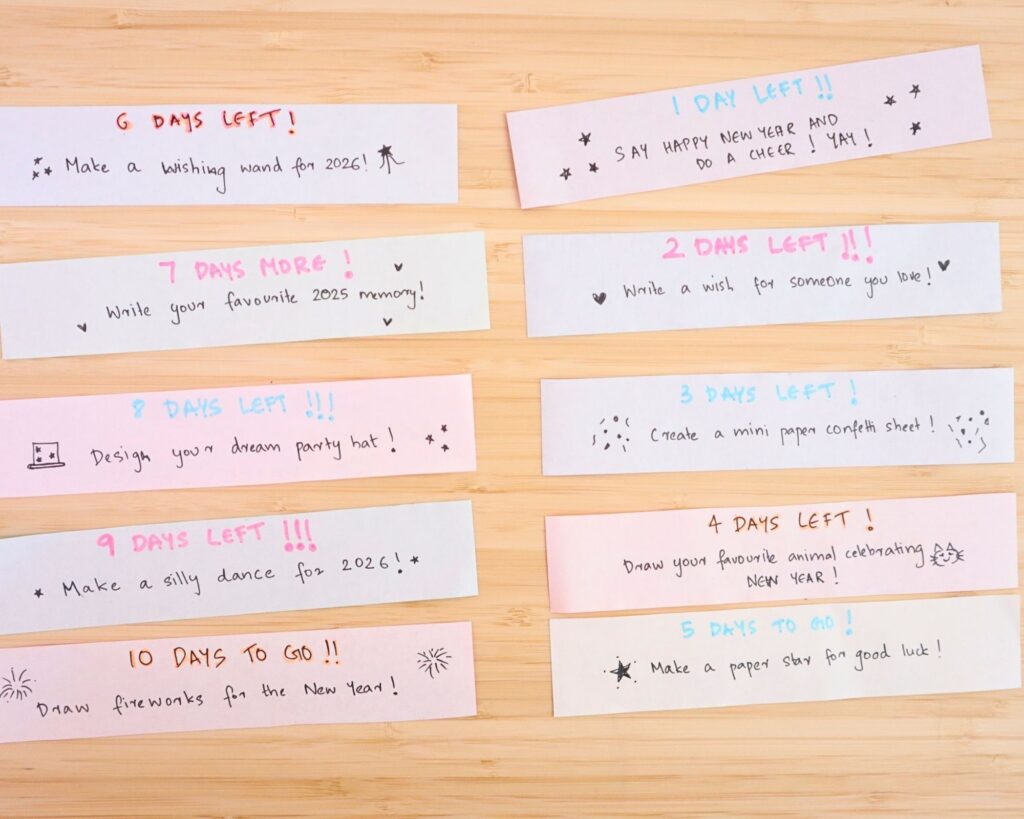 6 DAYS LEFT!
Make a wishing wand for 2026!
7 DAYS MORE !
Write your favourite 2025 memory!
8 DAYS LEFT !!!
Design your dream party hat !
9 DAYS LEFT !!!
Make a silly dance for 2026!
10 DAYS TO GO !!
Draw fireworks for the New Year!
1 DAY LEFT !!
SAY HAPPY NEW YEAR AND
DO A CHEER ! YAY !
2 DAYS LEFT !!!
Write a wish for someone you love!
3 DAYS LEFT !
Create a mini paper confetti sheet !
4 DAYS LEFT !
Draw your favourite animal celebrating
NEW YEAR !
5 DAYS TO GO !
Make a paper star for good luck !